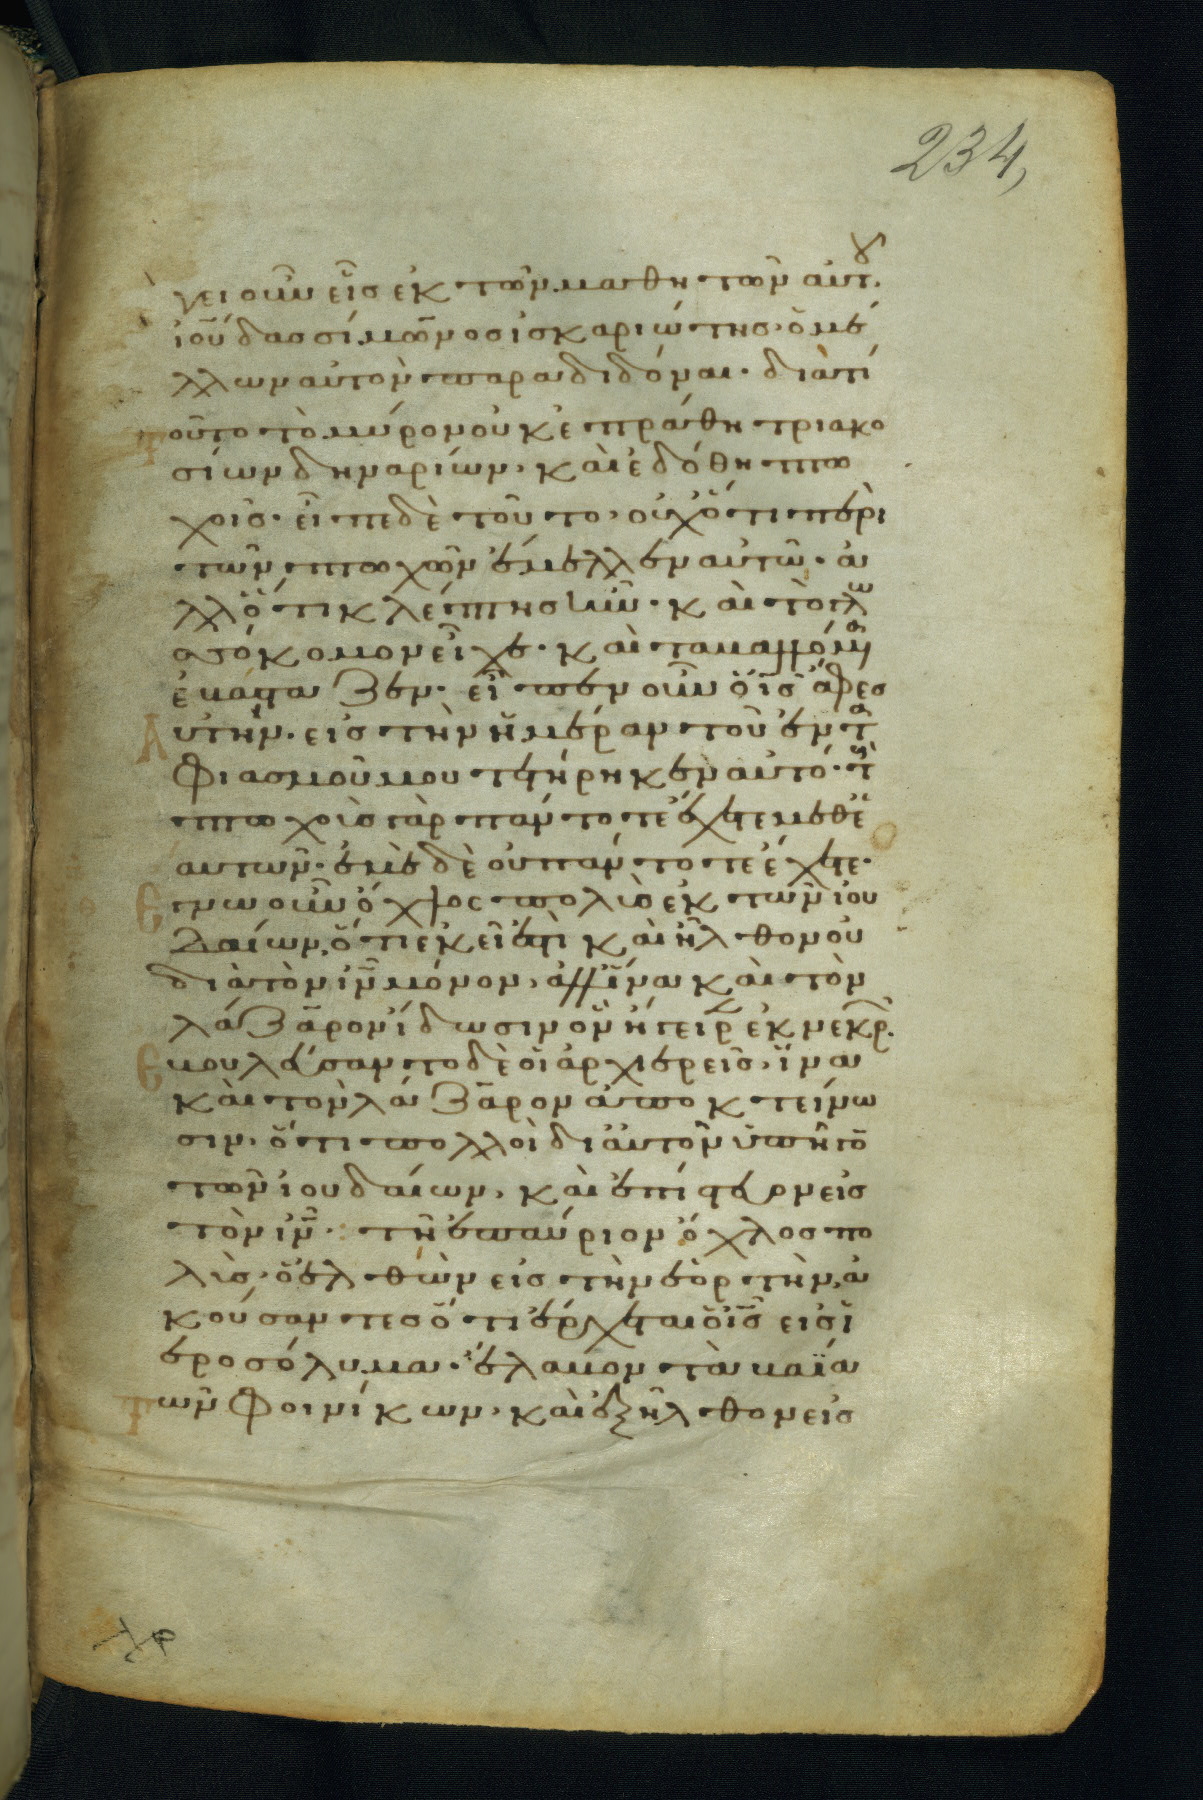 234,
γει οὖν εἷς ἐκ τῶν μαθητῶν αὐτου.
ἰούδας σίμωνος ἰσκαριώτης· ὁ μέ
λλων αὐτὸν παραδιδόναι· διατί
τοῦτο τὸ μύρον οὐκ ἐπράθη τριακο
σίων δηναρίων· καὶ ἐδόθη πτω
χοῖς· εἶπε δὲ τοῦτο· οὐχ ὅτι περὶ
τῶν πτωχῶν ἔμελλεν αὐτῶ· ἀ
λλ ὅτι κλέπτης ἦν· καὶ τὸ γλω
σσόκομον εἶχε· καὶ τὰ βαλλόμενα
ἐβάσταζεν· εἶπεν οὖν ὁ ις ἄφες
Αυτήν· εἰς τὴν ἡμέραν τοῦ ἐντα
φιασμοῦ μου τετήρηκεν αὐτό· τοὺς
πτωχοὺς γὰρ πάντοτε ἔχετε μεθ ἑ
αυτῶν· ἐμὲ δὲ οὐ πάντοτε ἔχετε·
Εγνω οὖν ὄχλος πολὺς ἐκ τῶν ἰου
δαίων, ὅτι ἐκεῖ ἐστι καὶ ἦλθον οὐ
διὰ τὸν ιν μόνον, ἀλλ ἵνα καὶ τὸν
λάζαρον ἴδωσιν ὃν ἤγειρεν ἐκ νεκρῶν.
Εβουλεύσαντο δὲ οἱ ἀρχιερεῖς, ἵνα
καὶ τὸν λάζαρον ἀποκτείνω
σιν· ὅτι πολλοὶ δι αὐτὸν ὑπῆγον
τῶν ἰουδαίων, καὶ ἐπίστευον εἰς
τὸν ιν· τῆ ἐπαύριον ὄχλος πο
λὺς· ὁ ἐλθὼν εἰς τὴν ἑορτὴν, ἀ
κούσαντες ὅτι ἔρχεται ὁ ις εἰς ἱ
εροσόλυμα· ἔλαβον τὰ βαΐα
Των φοινίκων· καὶ ἐξῆλθον εἰς